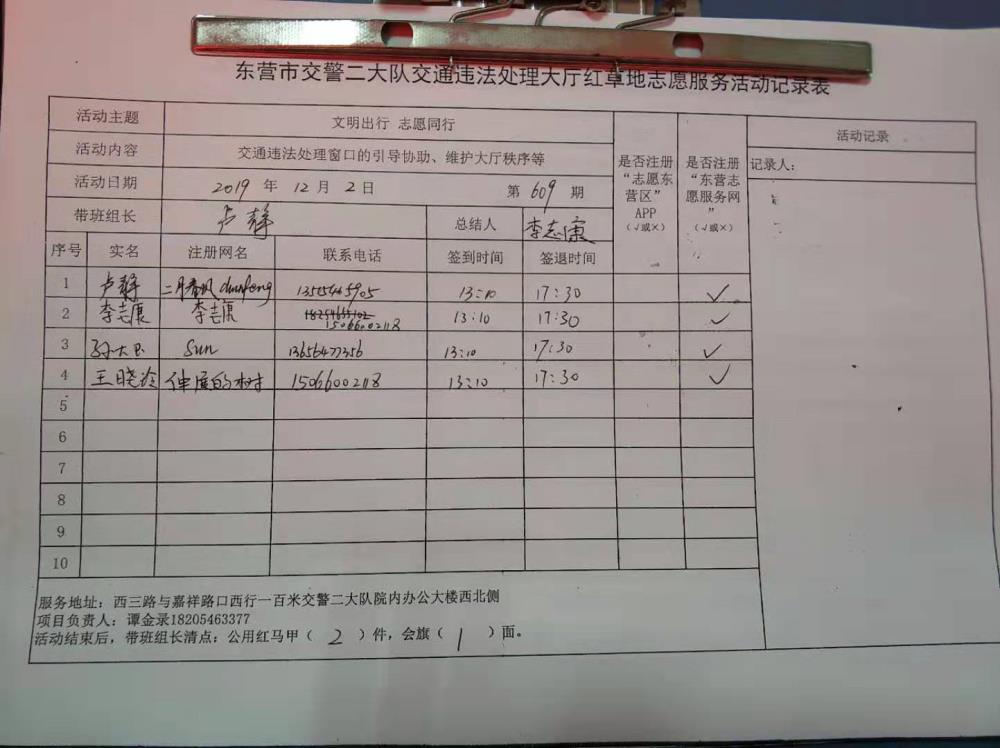 东营市交警二大队交通违法处理大厅红草地志愿服务活动记录表
活动主题 文明出行 志愿同行
活动内容 交通违法处理窗口的引导协助、维护大厅秩序等
活动日期 2019 年 12 月 2 日 第 609 期
带班组长 卢静 总结人 李志康
是否注册“志愿东营区”APP（√或×）
是否注册“东营志愿服务网”（√或×）
活动记录
记录人：
序号 实名 注册网名 联系电话 签到时间 签退时间
1 卢静 二月春风 13:10 17:30 ✓
2 李志康 李志康 15066002118 13:10 17:30 ✓
3 Sun 13656477356 13:10 17:30 ✓
4 王晓 伸展的树 15066002118 13:10 17:30 ✓
5
6
7
8
9
10
服务地址：西三路与嘉祥路口西行一百米交警二大队院内办公大楼西北侧
项目负责人：谭金录18205463377
活动结束后，带班组长清点：公用红马甲（ 2 ）件，会旗（ 1 ）面。